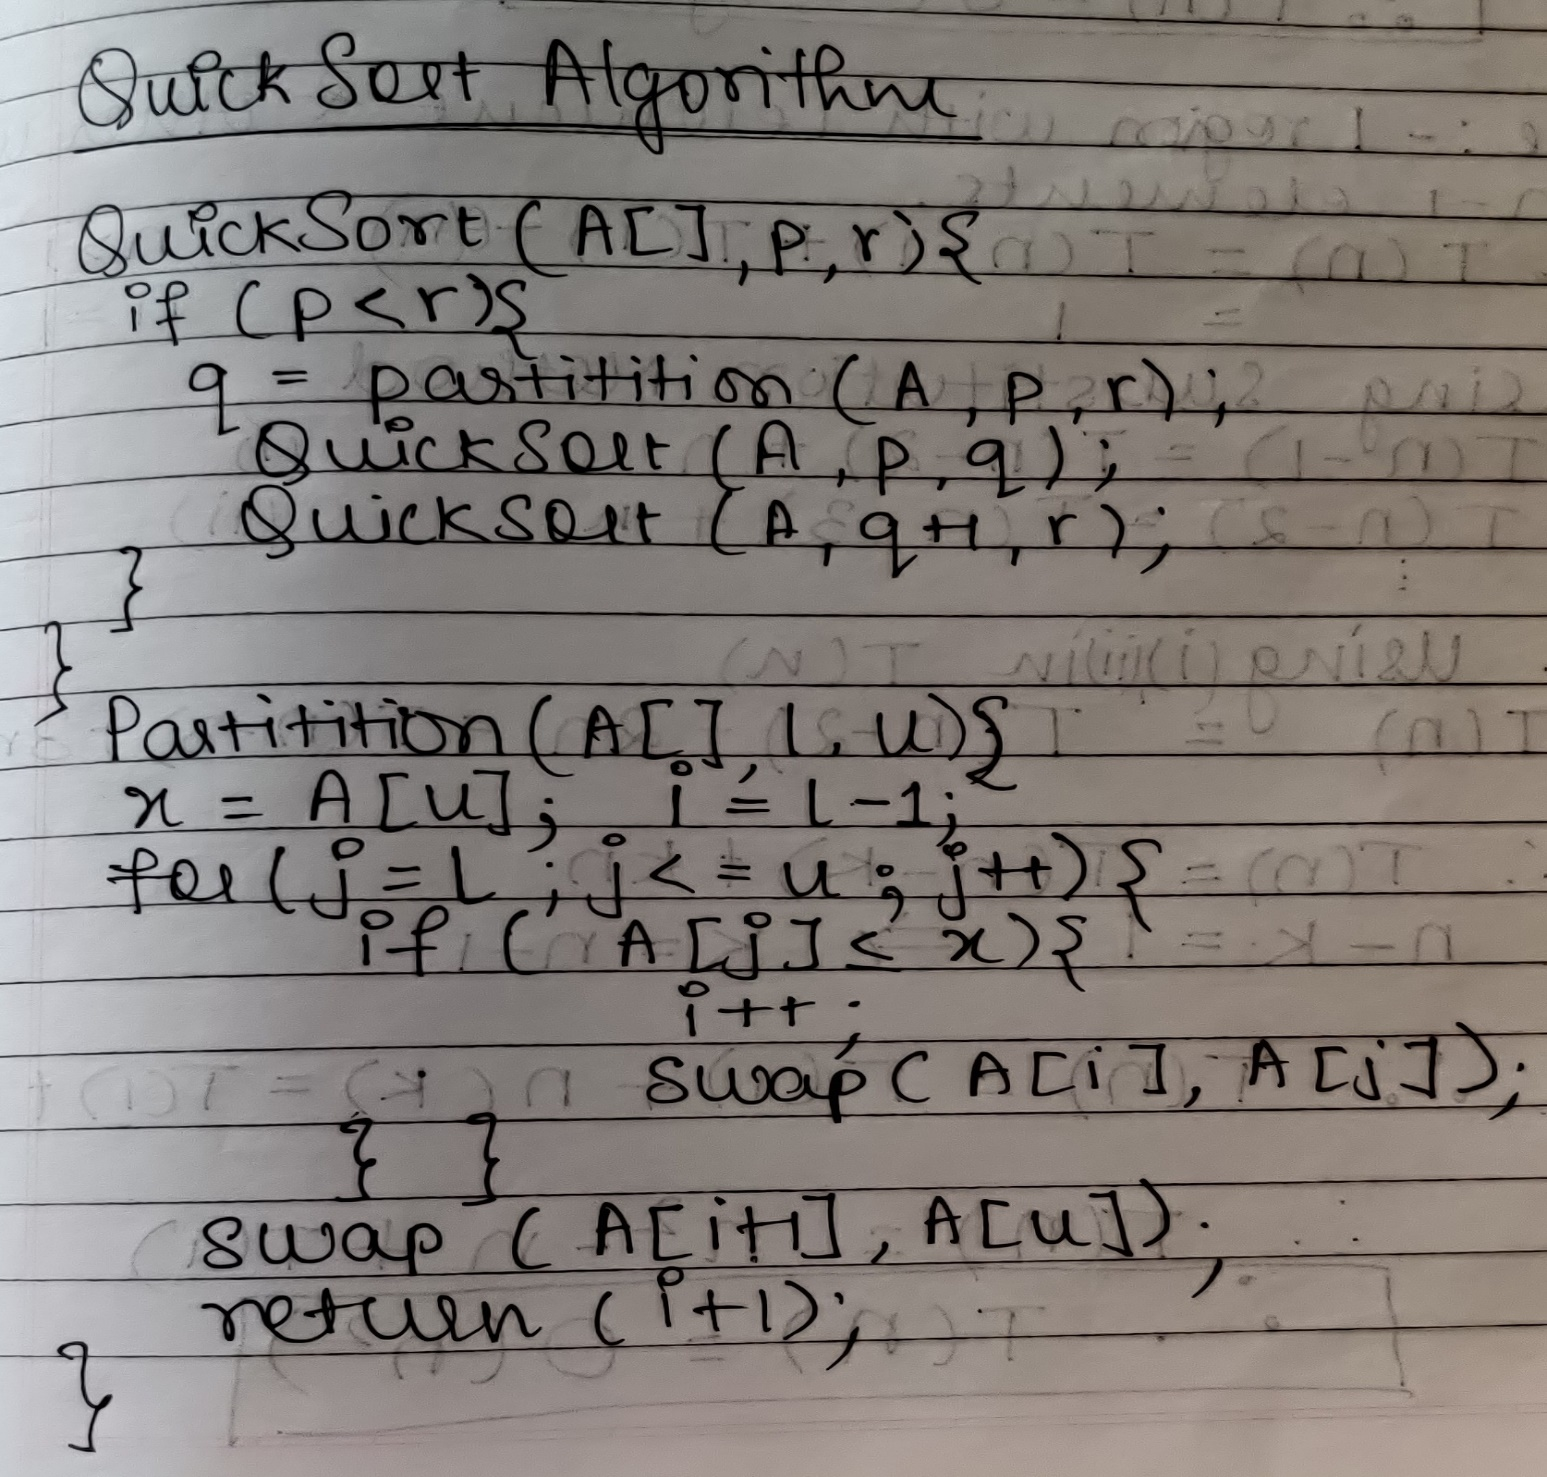 QuickSort Algorithm
QuickSort (A[], p, r){
if (p<r){
q = partitition (A, p, r);
QuickSort (A, p, q);
QuickSort (A, q+1, r);
}
}
Partitition (A[], l, u){
x = A[u]; i = l-1;
for (j = L ; j <= u ; j++) {
if ( A[j] ≤ x) {
i++;
swap ( A[i], A[j]);
} }
swap ( A[i+1], A[u]);
return (i+1);
}